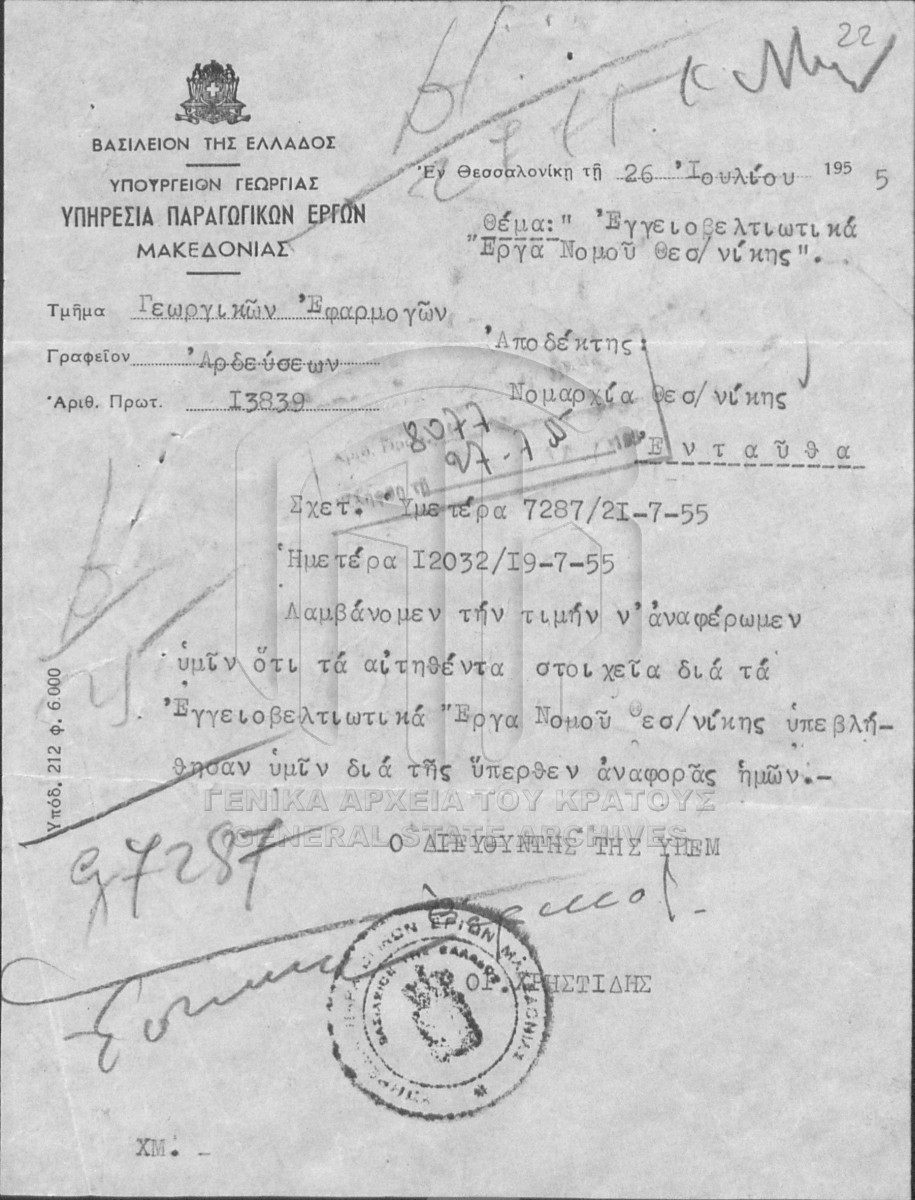 22
ΒΑΣΙΛΕΙΟΝ ΤΗΣ ΕΛΛΑΔΟΣ
ΥΠΟΥΡΓΕΙΟΝ ΓΕΩΡΓΙΑΣ
ΥΠΗΡΕΣΙΑ ΠΑΡΑΓΩΓΙΚΩΝ ΕΡΓΩΝ
ΜΑΚΕΔΟΝΙΑΣ
Ἐν Θεσσαλονίκῃ τῇ 26 Ἰουλίου 195 5
Θέμα:" Ἐγγειοβελτιωτικά
Ἔργα Νομοῦ Θεσ/νίκης".
Τμῆμα Γεωργικῶν Ἐφαρμογῶν
Γραφεῖον Ἀρδεύσεων
Ἀριθ. Πρωτ. Ι3839
Ἀποδέκτης:
Νομαρχία Θεσ/νίκης
Ἐνταῦθα
8077
27-7-55
Σχετ. Ὑμετέρα 7287/2Ι-7-55
Ἡμετέρα Ι2032/Ι9-7-55
Λαμβάνομεν τήν τιμήν ν'ἀναφέρωμεν
ὑμῖν ὅτι τά αἰτηθέντα στοιχεῖα διά τά
Ἐγγειοβελτιωτικά Ἔργα Νομοῦ Θεσ/νίκης ὑπεβλή-
θησαν ὑμῖν διά τῆς ὕπερθεν ἀναφορᾶς ἡμῶν.-
Ὑπόδ. 212 φ. 6.000
ΓΕΝΙΚΑ ΑΡΧΕΙΑ ΤΟΥ ΚΡΑΤΟΥΣ
GENERAL STATE ARCHIVES
Ο ΔΙΕΥΘΥΝΤΗΣ ΤΗΣ ΥΠΕΜ
7287
ΥΠΗΡΕΣΙΑ ΠΑΡΑΓΩΓΙΚΩΝ ΕΡΓΩΝ ΜΑΚΕΔΟΝΙΑΣ
ΒΑΣΙΛΕΙΟΝ ΤΗΣ ΕΛΛΑΔΟΣ
ΧΡΗΣΤΙΔΗΣ
ΧΜ. -